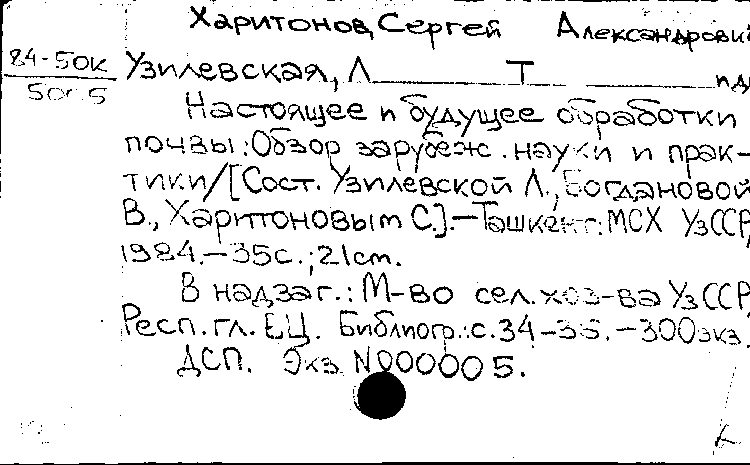 Харитонов, Сергей Александрович
84-50к Узилевская, Л Т пд
50г.5
Настоящее и будущее обработки
почвы: Обзор зарубеж. науки и прак-
тики/[Сост. Узилевской Л., Богдановой
В., Харитоновым С.].-Ташкент: МСХ УзССР,
1984.-35с.; 21см.
В надзаг.: М-во сел. хоз-ва УзССР,
Респ. гл. ЕЦ. Библиогр.: с.34-35.-300экз.
ДСП. Экз N000005.